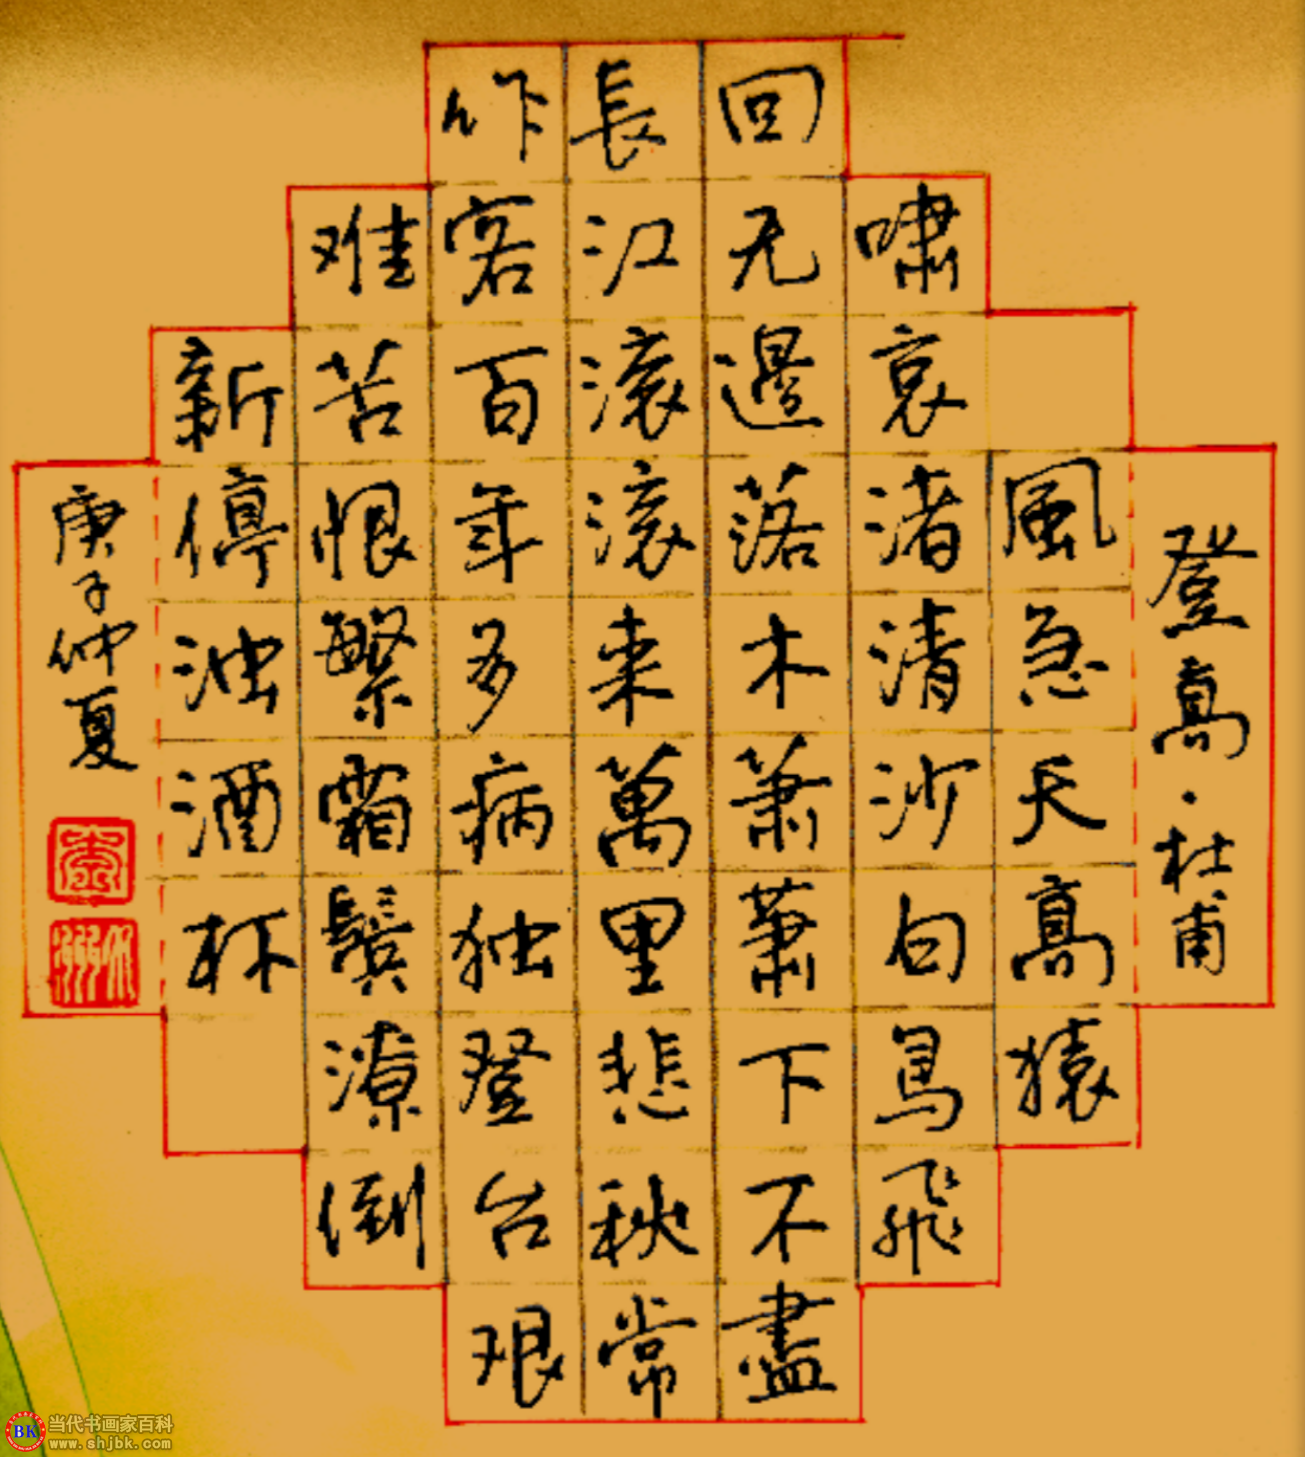 登高·杜甫
風急天高猿
啸哀渚清沙白鳥飛
回无邊落木萧萧下不盡
長江滚滚来萬里悲秋常
作客百年多病独登台艰
难苦恨繁霜鬓潦倒
新停浊酒杯
庚子仲夏
BK 当代书画家百科
www.shjbk.com